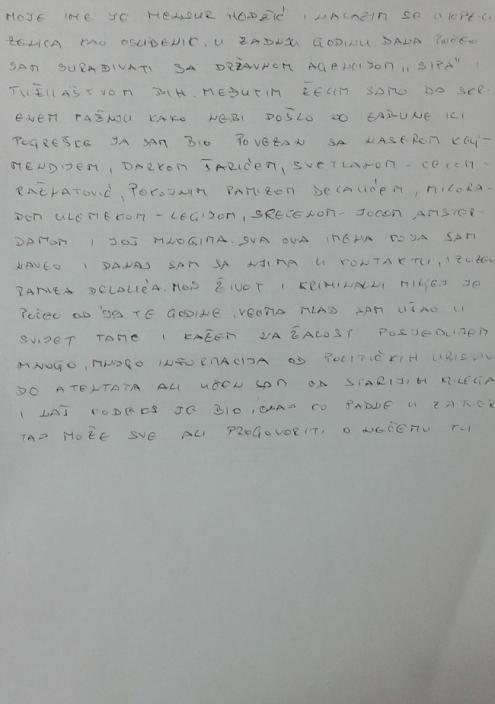 MOJE IME JE MENSUR HODŽIĆ I NALAZIM SE U KPZ-U
ZENICA KAO OSUĐENIK. U ZADNJU GODINU DANA POČEO
SAM SURAĐIVATI SA DRŽAVNOM AGENCIJOM „SIPA" I
TUŽILAŠTVOM BIH. MEĐUTIM ŽELIM SAMO DA SKR-
ENEM PAŽNJU KAKO NEBI DOŠLO DO ZABUNE ILI
POGREŠKE JA SAM BIO POVEZAN SA NASEROM KELJ-
MENDIJEM, DARKOM ŠARIĆEM, SVETLANOM - CECOM -
RAŽNATOVIĆ, POKOJNIM RAMIZOM DELALIĆEM, MILORA-
DOM ULEMEKOM - LEGIJOM, SREĆENOM - JOCOM AMSTER-
DAMOM I JOŠ MNOGIMA. SVA OVA IMENA KOJA SAM
NAVEO I DANAS SAM SA NJIMA U KONTAKTU, IZUZEV
RAMIZA DELALIĆA. MOJ ŽIVOT I KRIMINALNI MILJE JE
POČEO OD TE GODINE, VEOMA MLAD SAM UŠAO U
SVIJET TAME I KAŽEM NA ŽALOST POSJEDUJEM
MNOGO, MNOGO INFORMACIJA OD POLITIČKIH UBISTAVA
DO ATENTATA ALI UČEN SAM OD STARIJIH KOLEGA
I NAŠ KODEKS JE BIO, ONAJ KO PADNE U ZATVOR
TAJ MOŽE SVE ALI PROGOVORITI O NEČEMU TU